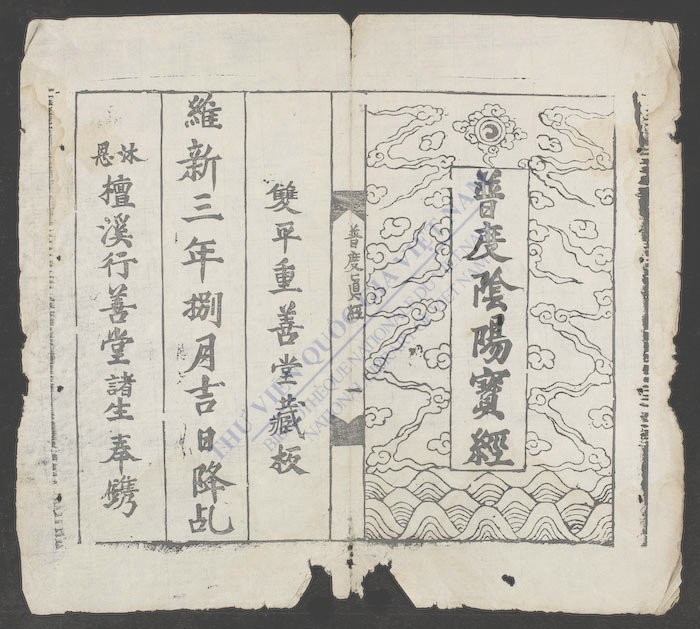 普度陰陽寶經
普度眞経
雙平重善堂藏板
維新三年捌月吉日降乩
沐恩檀溪行善堂諸生奉鐫
THƯ VIỆN QUỐC GIA VIỆT NAM
BIBLIOTHÈQUE NATIONALE DU VIETNAM
NATIONAL LIBRARY OF VIETNAM